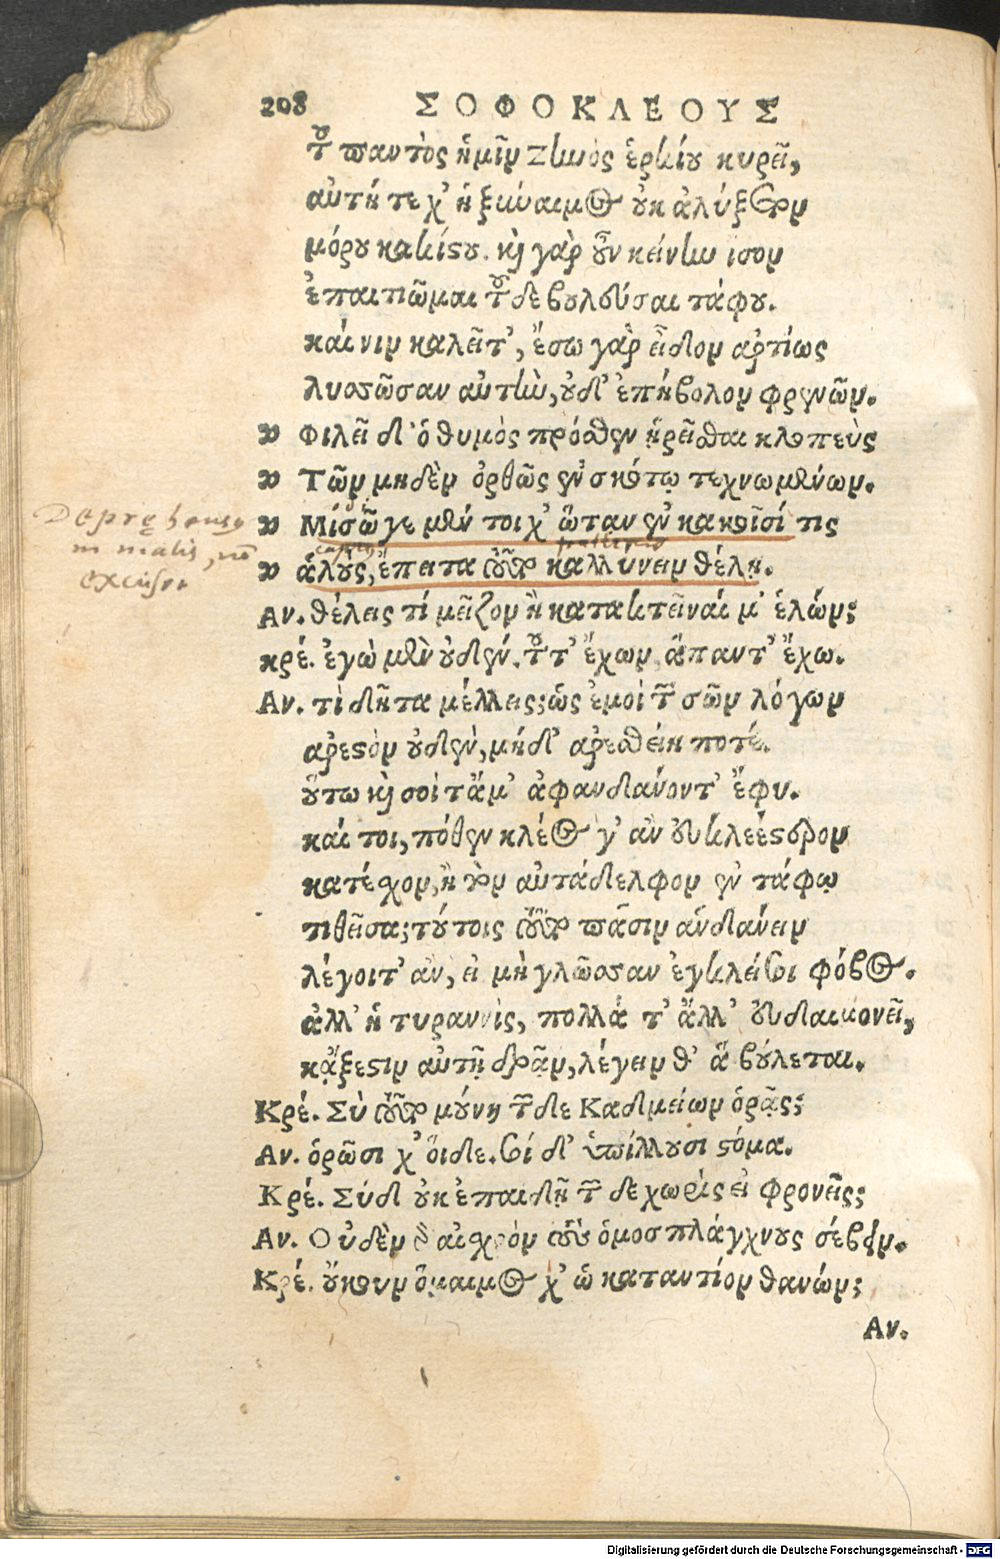 208 ΣΟΦΟΚΛΕΟΥΣ
τοῦ παντὸς ἡμῖν ζηνὸς ἑρκίου κυρεῖ,
αὐτή τε χ' ἡ ξύναιμος οὐκ ἀλύξετον
μόρου κακίστου. καὶ γὰρ οὖν κείνην ἴσον
ἐπαιτιῶμαι τοῦδε βουλεῦσαι τάφου.
καί νιν καλεῖτ', ἔσω γὰρ εἶδον ἀρτίως
λυσσῶσαν αὐτὴν, οὐδ' ἐπήβολον φρενῶν.
" Φιλεῖ δ' ὁ θυμὸς πρόσθεν ᾑρεῖσθαι κλοπεὺς
" Τῶν μηδὲν ὀρθῶς ἐν σκότῳ τεχνωμένων.
" Μισῶ γε μέν τοι χ' ὥταν ἐν κακοῖσί τις
" ἁλοὺς, ἔπειτα τοῦτο καλλύνειν θέλῃ.
Deprehensum
in malis, nō
excuset
Αν. θέλεις τί μεῖζον ἢ κατακτεῖναί μ' ἑλών;
κρέ. ἐγὼ μὲν οὐδέν. τοῦτ' ἔχων, ἅπαντ' ἔχω.
Αν. τί δῆτα μέλλεις; ὡς ἐμοὶ τῶν σῶν λόγων
ἀρεστὸν οὐδέν, μήδ' ἀρεσθείη ποτέ.
οὕτω καὶ σοὶ τἄμ' ἀφανδάνοντ' ἔφυ.
καί τοι, πόθεν κλέος γ' ἂν εὐκλεέστερον
κατέσχον, ἢ τὸν αὐτάδελφον ἐν τάφῳ
τιθεῖσα; τούτοις τοῦτο πᾶσιν ἁνδάνειν
λέγοιτ' ἂν, εἰ μὴ γλῶσσαν ἐγκλείσοι φόβος.
ἀλλ' ἡ τυραννὶς, πολλά τ' ἄλλ' εὐδαιμονεῖ,
κᾄξεστιν αὐτῇ δρᾷν, λέγειν θ' ἃ βούλεται.
Κρέ. Σὺ τοῦτο μούνη τῶνδε Καδμείων ὁρᾷς;
Αν. ὁρῶσι χ' οἵδε. σοί δ' ὑπίλλουσι στόμα.
Κρέ. Σύδ' οὐκ ἐπαιδῇ τῶνδε χωρὶς εἰ φρονεῖς;
Αν. Οὐδὲν γὰρ αἰσχρὸν τοὺς ὁμοσπλάγχνους σέβειν.
Κρέ. οὔκουν ὅμαιμος χ' ὠ καταντίον θανών;
Αν.
Digitalisierung gefördert durch die Deutsche Forschungsgemeinschaft - DFG